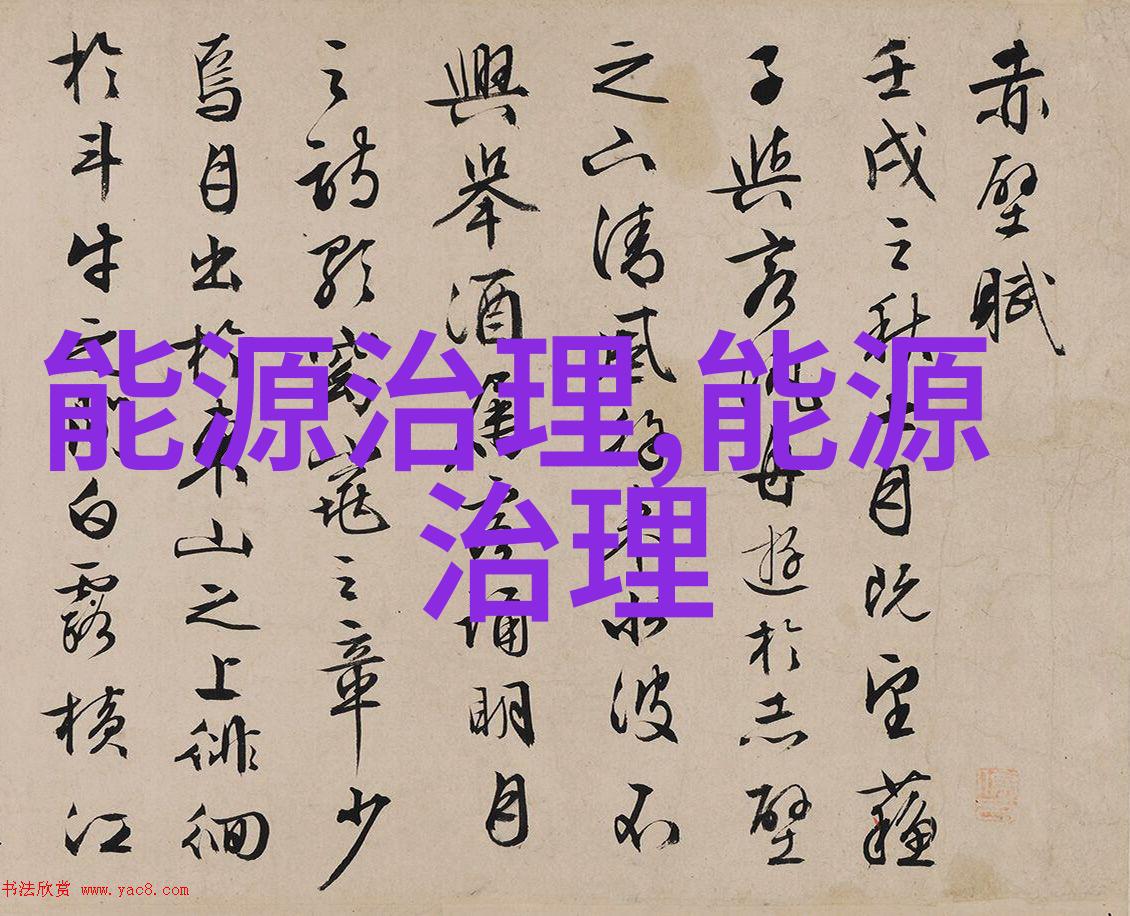 赤壁賦
壬戌之秋七月既望蘇
子與客泛舟遊於赤壁
之下清風徐來水波不
興舉酒屬客誦明月
之詩歌窈窕之章少
焉月出於東山之上徘徊
於斗牛之間白露橫江
能源治理,能源
治理
书法欣赏 www.yac8.com